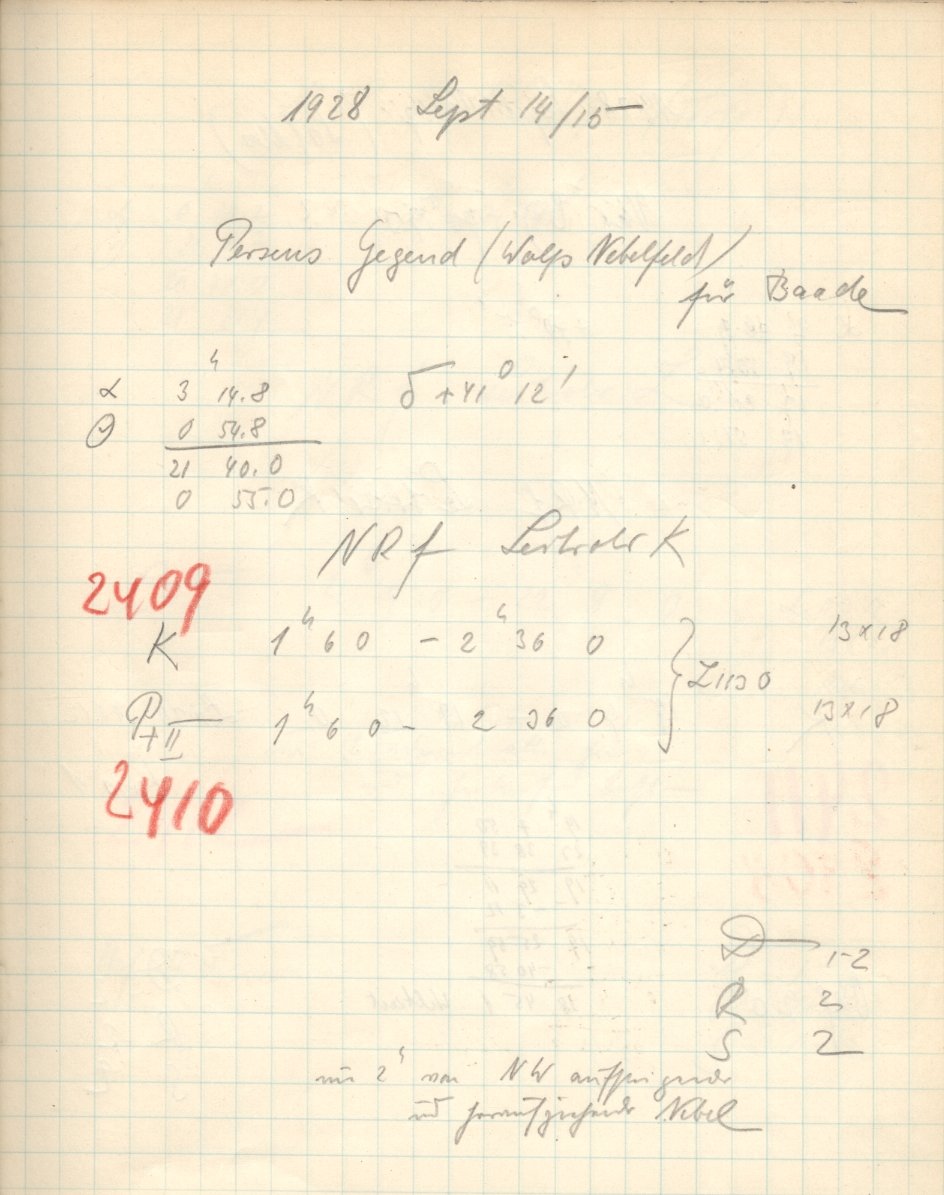 1928 Sept 14/15
Perseus Gegend (Wolfs Nebelfeld)
für Baade
α 3ʰ 14.8 δ +41° 12'
Θ 0 54.8
21 40.0
0 55.0
NRf Leitrohr K
2409
K 1ʰ 6 0 - 2ʰ 36 0 13x18
Z 1130
P+II 1ʰ 6 0 - 2 36 0 13x18
2410
D 1-2
R 2
S 2
um 2ʰ von NW aufsteigende
und heraufziehende Nebel